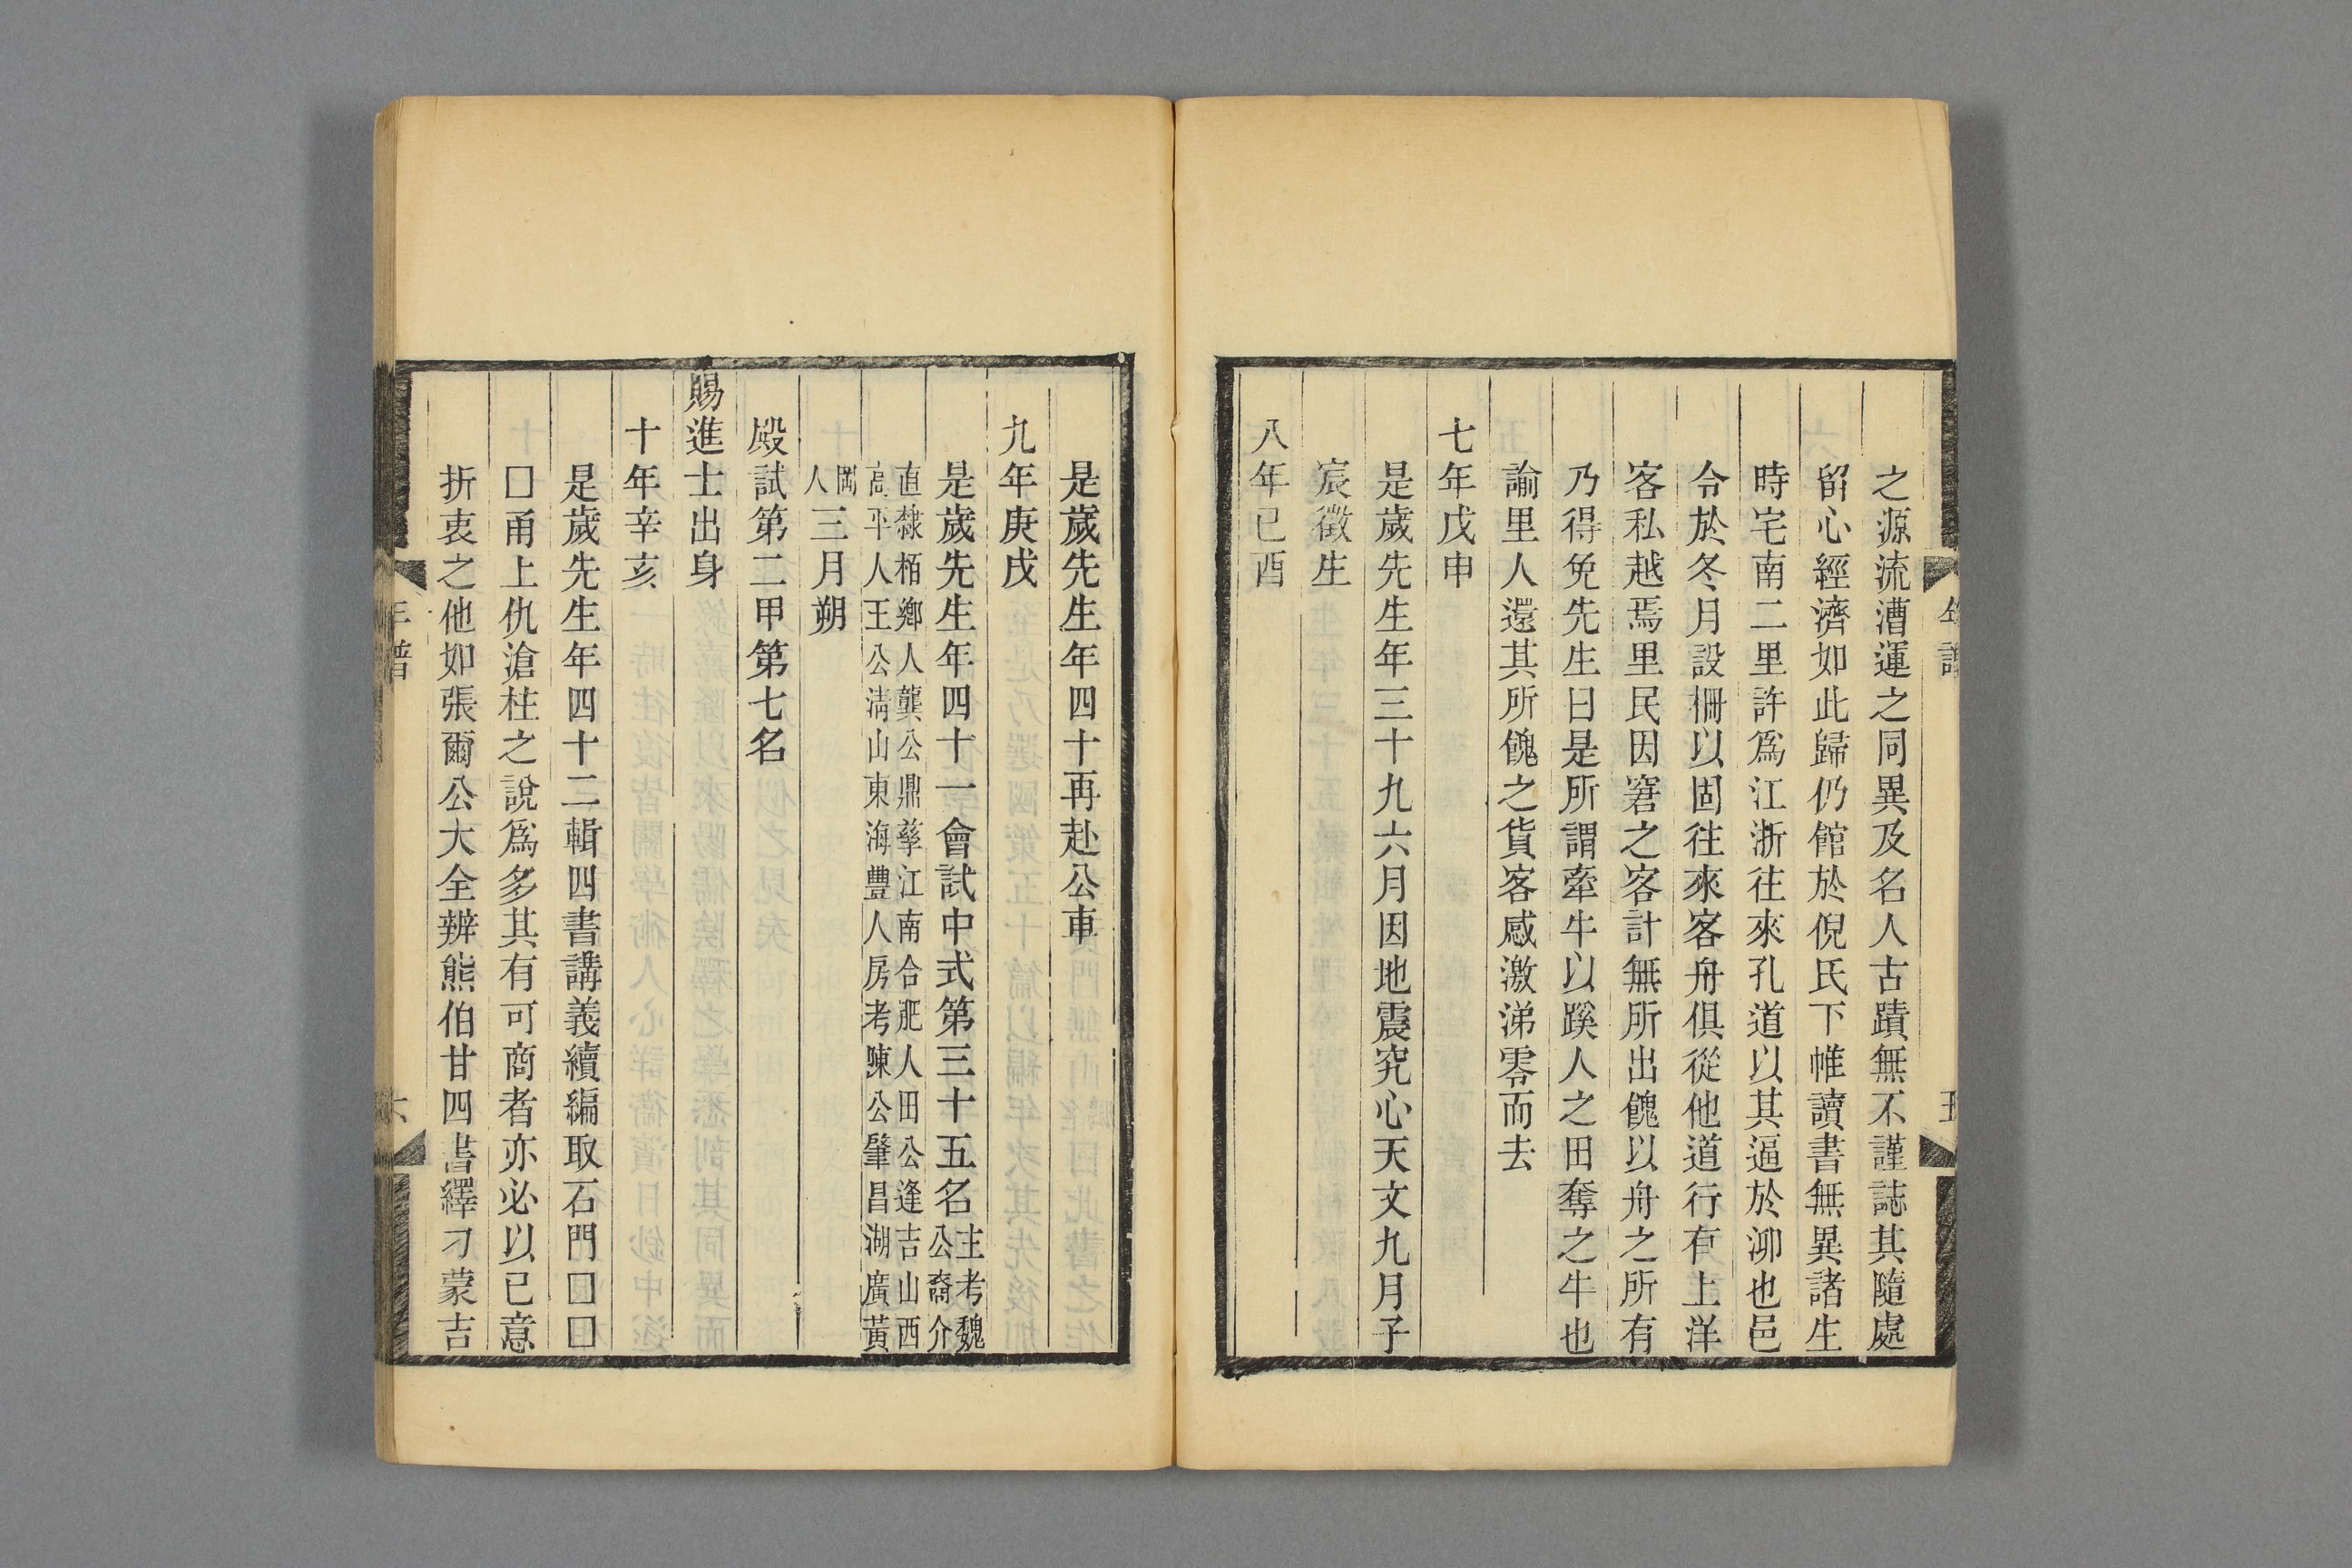 之源流漕運之同異及名人古蹟無不謹誌其隨處
留心經濟如此歸仍館於倪氏下帷讀書無異諸生
時宅南二里許爲江浙往來孔道以其逼於泖也邑
令於冬月設柵以固往來客舟俱從他道行有上洋
客私越焉里民因窘之客計無所出餽以舟之所有
乃得免先生曰是所謂牽牛以蹊人之田奪之牛也
諭里人還其所餽之貨客感激涕零而去
七年戊申
是歲先生年三十九六月因地震究心天文九月子
宸徵生
八年已酉
是歲先生年四十再赴公車
九年庚戌
是歲先生年四十一會試中式第三十五名主考魏
公裔介
直隸栢鄉人龔公鼎孳江南合肥人田公逢吉山西
高平人王公淸山東海豐人房考陳公肇昌湖廣黃
岡
人三月朔
殿試第二甲第七名
賜進士出身
十年辛亥
是歲先生年四十二輯四書講義續編取石門□□
□甬上仇滄柱之說爲多其有可商者亦必以已意
折衷之他如張爾公大全辨熊伯甘四書繹刁蒙吉
年譜
六